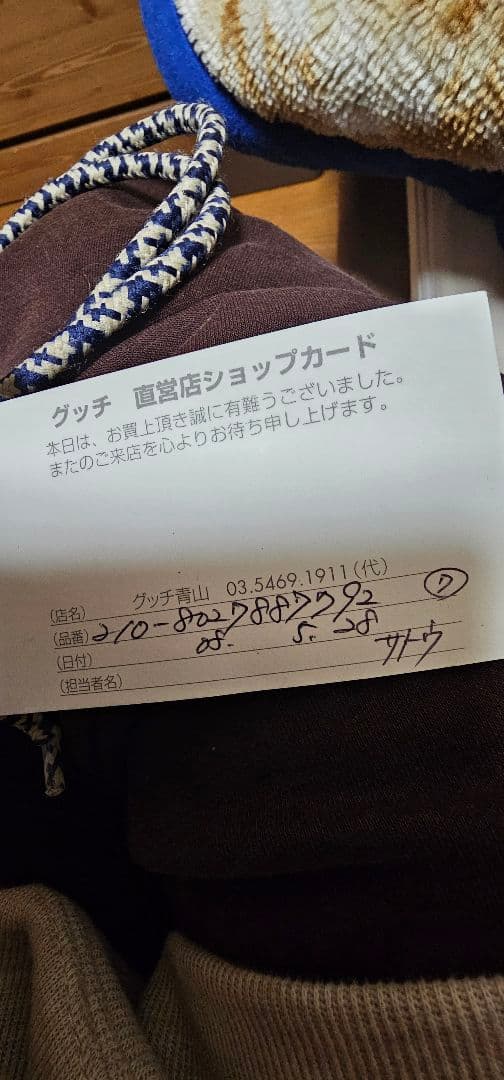 グッチ 直営店ショップカード
本日は、お買上頂き誠に有難うございました。
またのご来店を心よりお待ち申し上げます。
(店名) グッチ青山 03.5469.1911(代)
(品番) 210-80278877792 ⑦
(日付) 08. 5. 28
(担当者名) サトウ